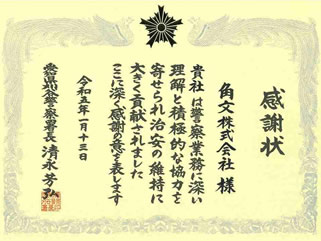 感謝状
角文株式会社 様
貴社は警察業務に深い
理解と積極的な協力を
寄せられ治安の維持に
大きく貢献されました
ここに深く感謝の意を表します
令和五年一月十三日
愛知県刈谷警察署長 清水芳弘